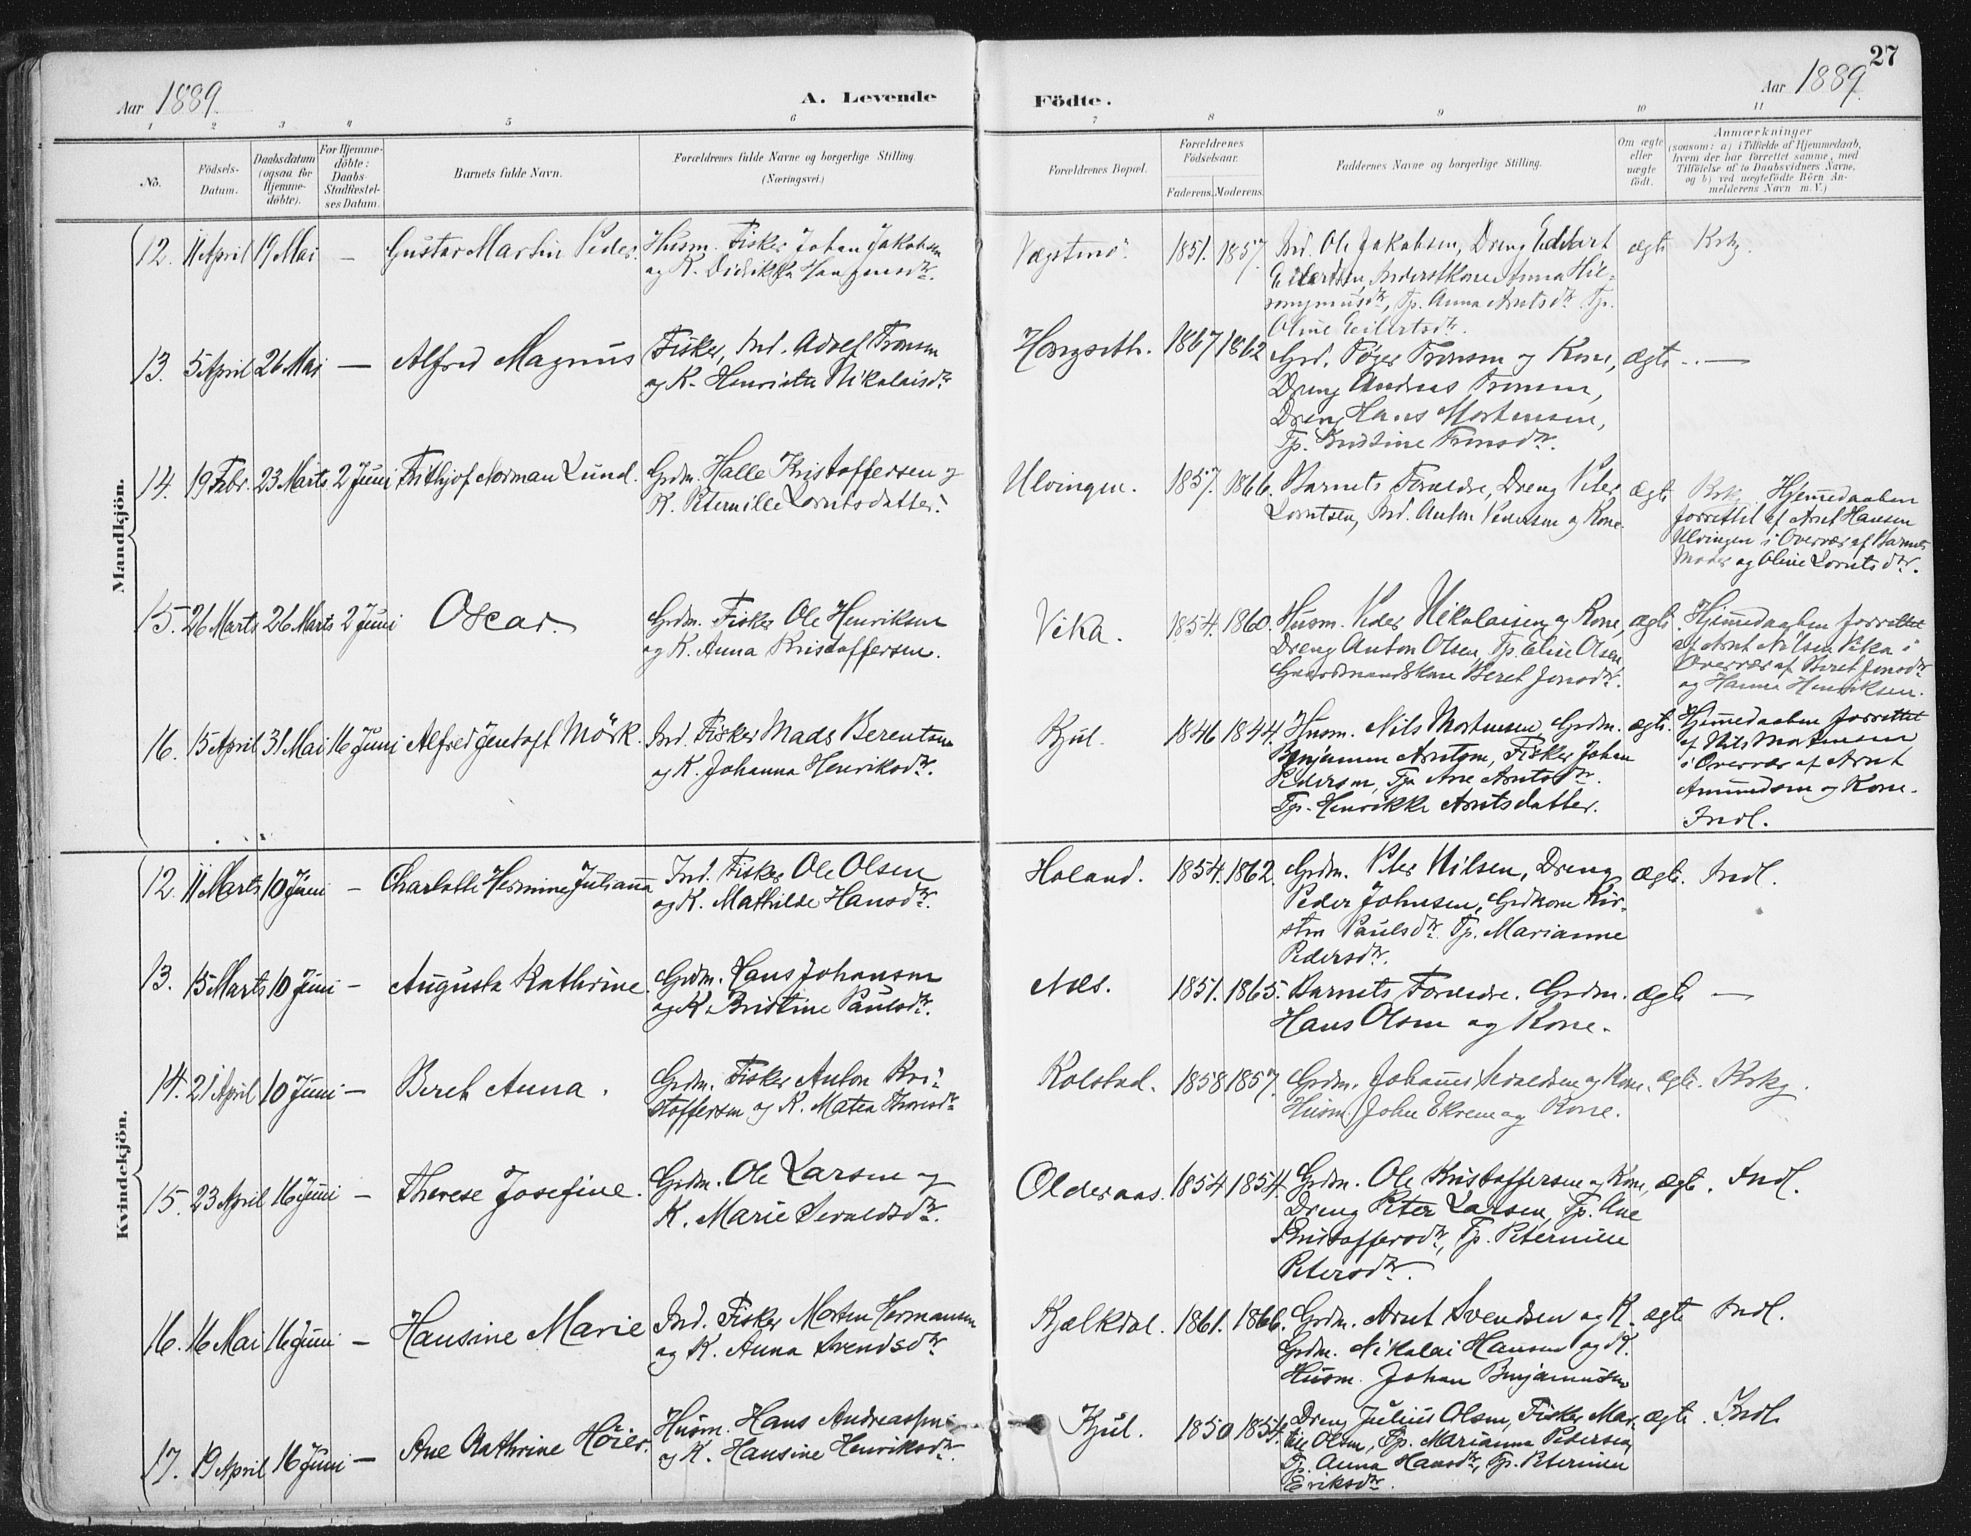 27
Aar 1889.
A. Levende
Födte.
Aar 1889.
1 2 3 4 5 6 7 8 9 10 11
No.
Födsels-
Datum.
Daabsdatum
(ogsaa for
Hjemme-
döbte).
For Hjemme-
döbte:
Daabs-
Stadfæstel-
ses Datum.
Barnets fulde Navn.
Forældrenes fulde Navne og borgerlige Stilling.
(Næringsvei.)
Forældrenes Bopæl.
Forældrenes
Födselsaar.
Faderens. Moderens.
Faddernes Navne og borgerlige Stilling.
Om ægte
eller
uægte
födt.
Anmærkninger
(saasom: a) i Tilfælde af Hjemmedaab,
hvem der har forrettet samme, med
Tilföielse af to Daabsvidners Navne,
og b) ved uægtefödte Börn An-
melderens Navn m. V.)
Mandkjön.
12. 11 April 19 Mai — Gustav Martin Peder.
Husm. Fisker Johan Jakobsen
og K. Didrikka Haagensdtr.
1851. 1857.
Ind. Ole Jakobsen, Dreng Edvart
Anna
Tp. Anna Arntsdtr Tp.
Oline Eilertsdtr.
ægte Krkg.
13. 5 April 26 Mai — Alfred Magnus
Fisker, Ind. Adolf Tronsen
og K. Henriette Nikolaisdtr
Hongseth. 1867 1862
Grd. Tronsen og Kone,
Dreng Andreas Tronsen,
Dreng Hans Mortensen,
Tp. Tronsdtr.
ægte —
14. 19 Febr. 23 Marts 2 Juni Frithjof Norman Lund.
Grdm. Halle Kristoffersen og
K. Peternille Lorntsdatter.
Ulvingen. 1857. 1866.
Barnets Forældre, Dreng Peter
Lorntsen, Ind. Anton Pedersen og Kone
ægte Krkg. Hjemedaaben
forrettet af Arnt Hansen
Ulvingen i Overvær af Barnets
Moder og Oline Lorntsdtr.
15. 26 Marts 26 Marts 2 Juni Oscar.
Grdm. Fisker Ole Henriksen
og K. Anna Kristoffersen.
Vika. 1854. 1860.
Husm. Peder Nikolaisen og Kone,
Dreng Anton Olsen, Tp. Eline Olsen,
Gaardmandskone Beret Jonsdtr.
ægte Hjemedaaben forrettet
af Arnt Nilsen Vika i
Overvær af Beret Jonsdtr
og Hanna Henriksen.
16. 15 April 31 Mai 16 Juni Alfred Jentoft Mörk.
Ind. Fisker Mads Berentsen
og K. Johanna Henriksdtr.
Kjul. 1846 1844.
Husm. Nils Mortensen, Grdm.
Benjamin Arntsen, Fisker Johan
Pedersen, Tp. Ane Arntsdtr.
Tp. Henrikke Arntsdatter.
ægte. Hjemedaaben forrettet
af Nils Mortensen
i Overvær af Arnt
Amundsen og Kone.
Indl.
Kvindekjön.
12. 11 Marts 10 Juni — Charlotte Hermine Julianna
Ind. Fisker Ole Olsen
og K. Mathilde Hansdtr.
Holand. 1854. 1862.
Grdm. Peter Nilsen, Dreng
Peder Johnsen, Grdkone Kir-
sten Paulsdtr. Tp. Marianne
Pedersdtr.
ægte. Indl.
13. 15 Marts 10 Juni — Augusta Kathrine.
Grdm. Hans Johansen
og K. Kristine Paulsdtr.
Aes. 1851. 1865.
Barnets Forældre. Grdm.
Hans Olsen og Kone.
ægte —
14. 21 April 10 Juni — Beret Anna.
Grdm. Fisker Anton Kri-
stoffersen og K. Matea Thomsdtr
Kolstad. 1858 1857.
Grdm. Johannes Sevaldsen og Kone.
Husm. John Ekrem og Kone.
ægte. Krkg.
15. 23 April 16 Juni — Therese Josefine.
Grdm. Ole Larsen og
K. Marie Sevaldsdtr.
Olderaas. 1854 1854.
Grdm. Ole Kristoffersen og Kone,
Dreng Peter Larsen, Tp. Ane
Kristoffersdtr, Tp. Peternille
Petersdtr.
ægte. Indl.
16. 16 Mai 16 Juni — Hansine Marie
Ind. Fisker Morten Hermansen
og K. Anna Svendsdtr
Kjælkdal. 1861. 1866.
Grdm. Arnt Svendsen og K.
Grdm. Nikolai Hansen og K.
Husm. Johan Benjaminsen
ægte Indl.
17. 19 April 16 Juni — Ane Kathrine Höier.
Husm. Hans Andreassen
og K. Hansine Henriksdtr.
Kjul. 1850 1854.
Dreng Julius Olsen, Fisker Mar-
tin Olsen, Tp. Marianna Petersen,
Tp. Anna Hansdtr, Tp. Peternille
Eriksdtr.
ægte. Indl.